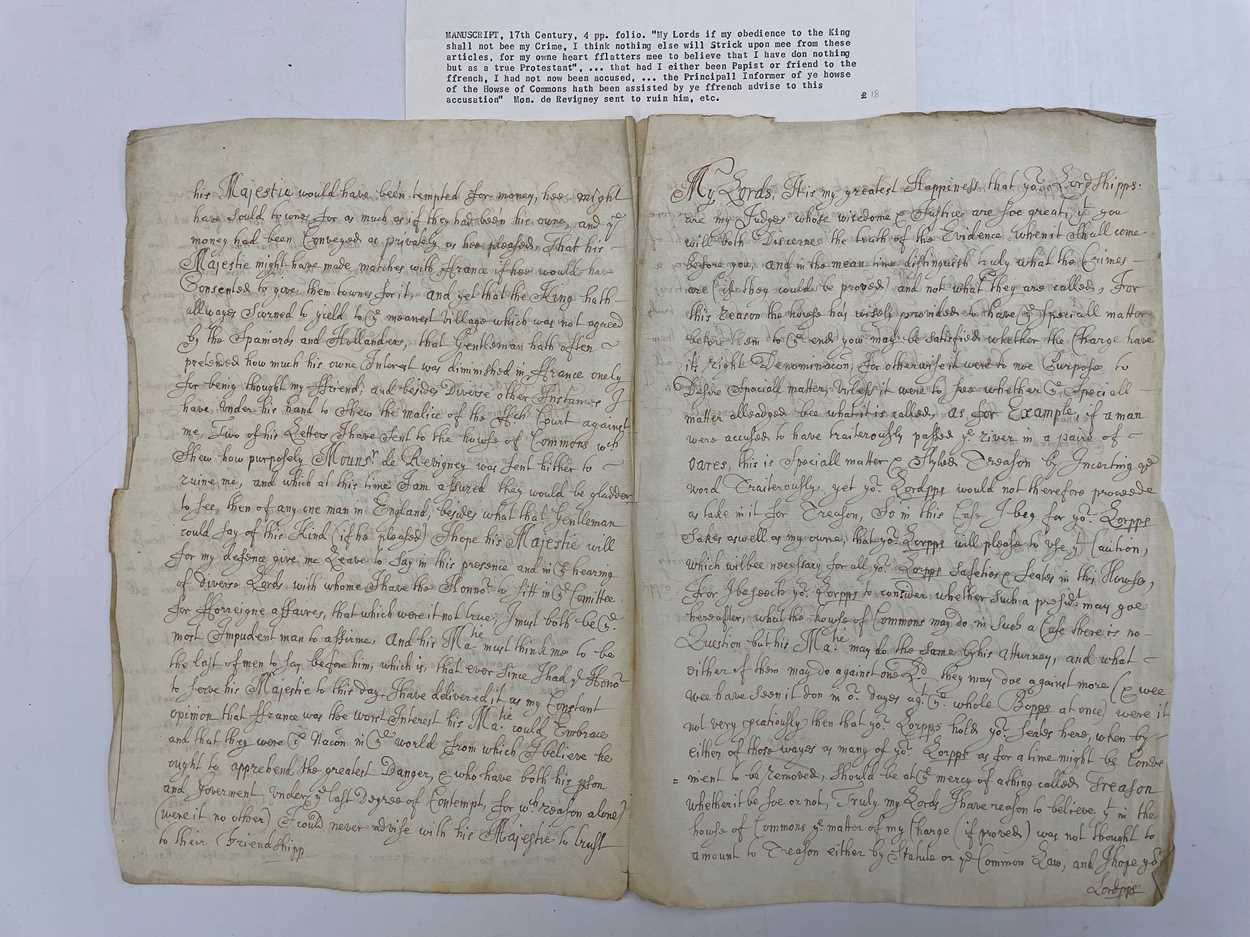 MANUSCRIPT, 17th Century, 4 pp. folio. "My Lords if my obedience to the King
shall not bee my Crime, I think nothing else will Strick upon mee from these
articles, for my owne heart fflatters mee to believe that I have don nothing
but as a true Protestant", ... that had I either been Papist or friend to the
ffrench, I had not now been accused, ... the Principall Informer of ye howse
of the Howse of Commons hath been assisted by ye ffrench advise to this
accusation" Mon. de Revigney sent to ruin him, etc.
£ 18
his Majestie would have been tempted for money, hee might
have sould townes for as much as if they had been his owne, and ye
money had been Conveyed as privately as hee pleased, That his
Majestie might have made matches with ffrance if hee would have
Consented to give them townes for it, and yet that the King hath
allwayes scorned to yield to ye meanest Village which was not agreed
by the Spaniards and Hollanders, that Gentleman hath often
pretended how much his owne Interest was diminished in ffrance onely
for being thought my ffriend, and besides Diverse other Instances I
have under his hand to shew the malice of the ffch Court against
me, Two of his Letters I have sent to the howse of Commons wch
shew how purposely Mounsr de Revigney was sent hither to
ruine me, and which at this time I am assured they would be gladder
to see, then of any one man in England, besides what that Gentleman
could say of this Kind (if he pleased) I hope his Majestie will
for my defence give me Leave to say in this presence and in ye hearing
of diverse Lords with whome I have the Honnor to sitt in ye Comittee
for fforreigne affayres, that which were it not true, I must both be ye
most Impudent man to affirme, And his Matie must think me to be
the last of men to say before him, which is, that ever since I had ye Honor
to serve his Majestie to this day I have delivered it as my Constant
opinion that ffrance was the worst Interest his Matie could Embrace
and that they were ye Nacon in ye world from which I believe he
ought to apprehend the greatest Danger, & who have both his pson
and Goverment under ye last Degree of Contempt, for wch reason alone
(were it no other) I could never advise with his Majestie to trust
to their Friendshipp
My Lords, It is my greatest Happiness that yor Lordshipps
are my Judges whose wisdome & Justice are soe great, yt you
will both Discerne the truth of the Evidence when it shall come
before you, and in the mean time distinguish truly what the Crimes
are (if they could be proved) and not what they are called, For
this reason the howse has wisely provided to have ye Speciall matter
before them to ye end you may be satisfied whether the Charge have
its right Denominacon, For otherwise it were to noe Purpose to
Desire Speciall matter, unless it were to see whether ye Speciall
matter alleadged bee what it is called, as for Example, if a man
were accused to have traiterously passed ye river in a paire of
oares, this is Speciall matter & Styled Treason by Incerting ye
word Traiterously, yet yor Lordpps would not therefore proceede
as take in it for Treason, So in this Case I beg for yor Lorpps
sakes as well as my owne, that yor Lorpps will please to use yt Caution,
which will bee necessary for all yor Lorpps Safeties & Seates in this House,
For I beseech yor Lorpps to consider whether such a presidt may goe
hereafter, what the house of Commons may do in such a Case there is no
Question but his Matie may do the same by his Atturney, and what
either of them may do against one Ld they may doe against more (& wee
wee have seen it don in or dayes agt ye whole Bopps at once) were it
not very pcatiously then that yor Lorpps hold yor Seates here, when by
either of those wayes as many of yor Lorpps as for a time might be Conve
=nient to be removed, should be at ye mercy of a thing called Treason
whether it be soe or not, Truly my Lords I have reason to believe yt in the
howse of Commons ye matter of my Charge (if proved) was not thought to
amount to Treason either by Statute or ye Common Law, and I hope yor
Lordpps